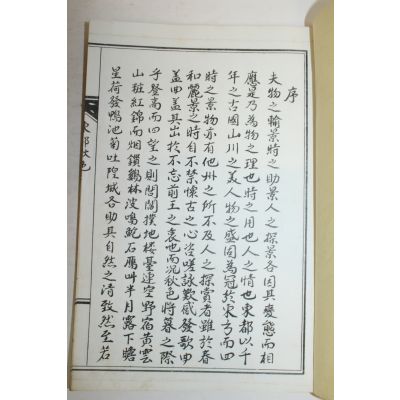 序
夫物之輸景時之助景人之探景各因其變態而相
應是乃為物之理也時之用也人之情也東都以千
年之古國山川之美人物之盛固為冠於東方而四
時之景物亦有他州之所不及人之探賞者雖於春
和麗景之時自不禁懷古之心咨嗟詠歎感發歌曲
盖曲盖其出於不忘前王之衷也而况秋色將暮之際
乎登高而四望之則閭閻撲地楼臺連空野宿黄雲
山粧紅錦而烟鎖鷄林波鳴鮀石鴈叫半月露下瞻
星荷發鴨池菊吐隍城各助其自然之清致然至若
東都秋色